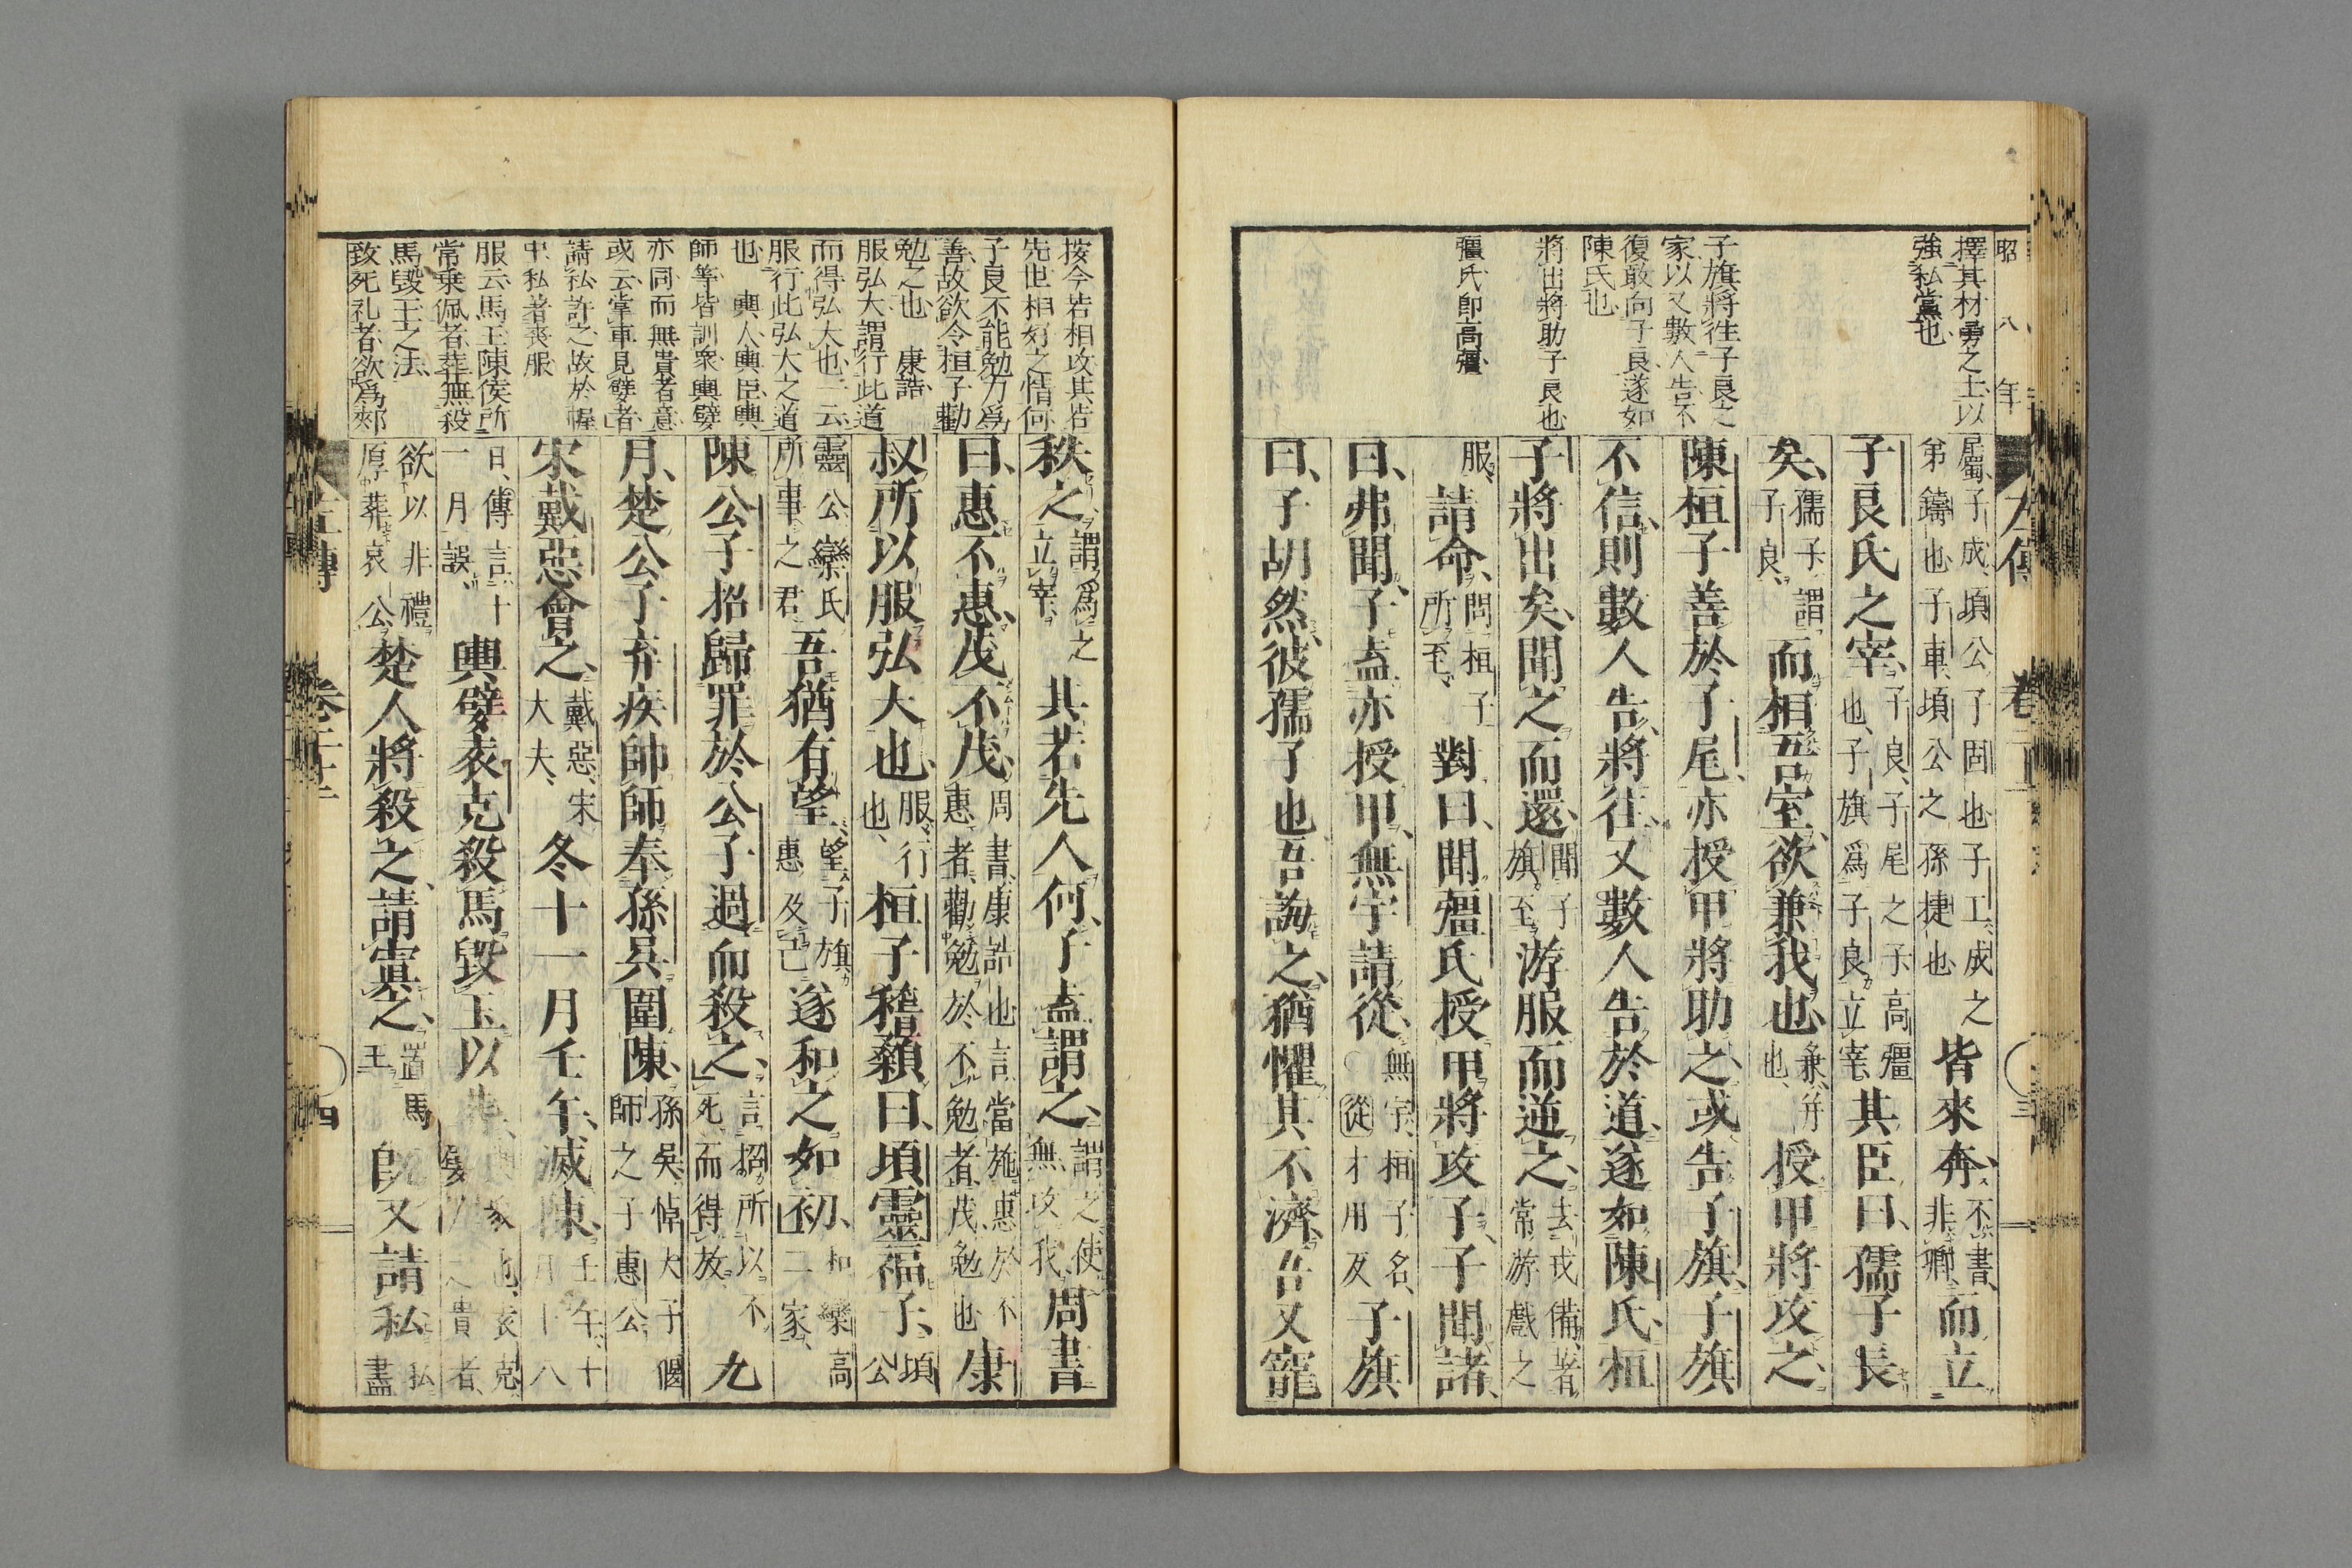 昭八年
左傳
卷二十二
三
擇其材勇之士以
強私黨也
子旗將往子良之
家以又數人告不
復敢向子良遂如
陳氏也
將出將助子良也
彊氏卽高彊
屬子成頃公子固也子工成之
弟鑄也子車頃公之孫捷也
皆來奔不書
非卿而立
子良氏之宰子良子尾之子高彊
也子旗爲子良立宰其臣曰孺子長
矣孺子謂
子良而相吾室欲兼我也兼并
也授甲將攻之
陳桓子善於子尾亦授甲將助之或告子旗子旗
不信則數人告將往又數人告於道遂如陳氏桓
子將出矣聞之而還聞子
旗至游服而逆之去戎備著
常游戲之
服請命問桓子
所至對曰聞彊氏授甲將攻子子聞諸
曰弗聞子盍亦授甲無宇請從無宇桓子名
從才用反子旗
曰子胡然彼孺子也吾誨之猶懼其不濟吾又寵
按今若相攻其若
先世相好之情何
子良不能勉力爲
善故欲令桓子勸
勉之也 康誥
服弘大謂行此道
而得弘大也一云
服行此弘大之道
也 輿人輿臣輿
師等皆訓衆輿嬖
亦同而無貴者意
或云掌車見嬖者
請私許之故於幄
中私著喪服
服云馬玉陳侯所
常乗佩者葬無殺
馬毀玉之法
致死礼者欲爲郟
秩之謂爲之
立宰其若先人何子盍謂之謂之使
無攻我周書
曰惠不惠茂不茂周書康誥也言當施惠於不
惠者勸勉於不勉者茂勉也康
叔所以服弘大也服行
也桓子稽顙曰頃靈福子頃
公
靈公欒氏
所事之君吾猶有望望子旗
惠及己遂和之如初和欒高
二家
陳公子招歸罪於公子過而殺之言招所以不
死而得放九
月楚公子弃疾帥師奉孫吳圍陳孫吳悼大子偃
師之子惠公
宋戴惡會之戴惡宋
大夫冬十一月壬午滅陳壬午十
月十八
日傳言十
一月誤輿嬖袁克殺馬毀玉以葬輿衆也袁克
嬖人之貴者
欲以非禮
厚葬哀公楚人將殺之請寘之置馬
玉旣又請私私
盡
左傳
卷二十二
四